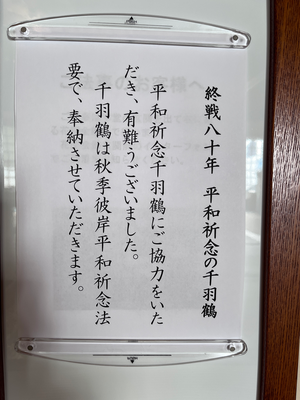 終戦八十年　平和祈念の千羽鶴
平和祈念千羽鶴にご協力をいた
だき、有難うございました。
千羽鶴は秋季彼岸平和祈念法
要で、奉納させていただきます。